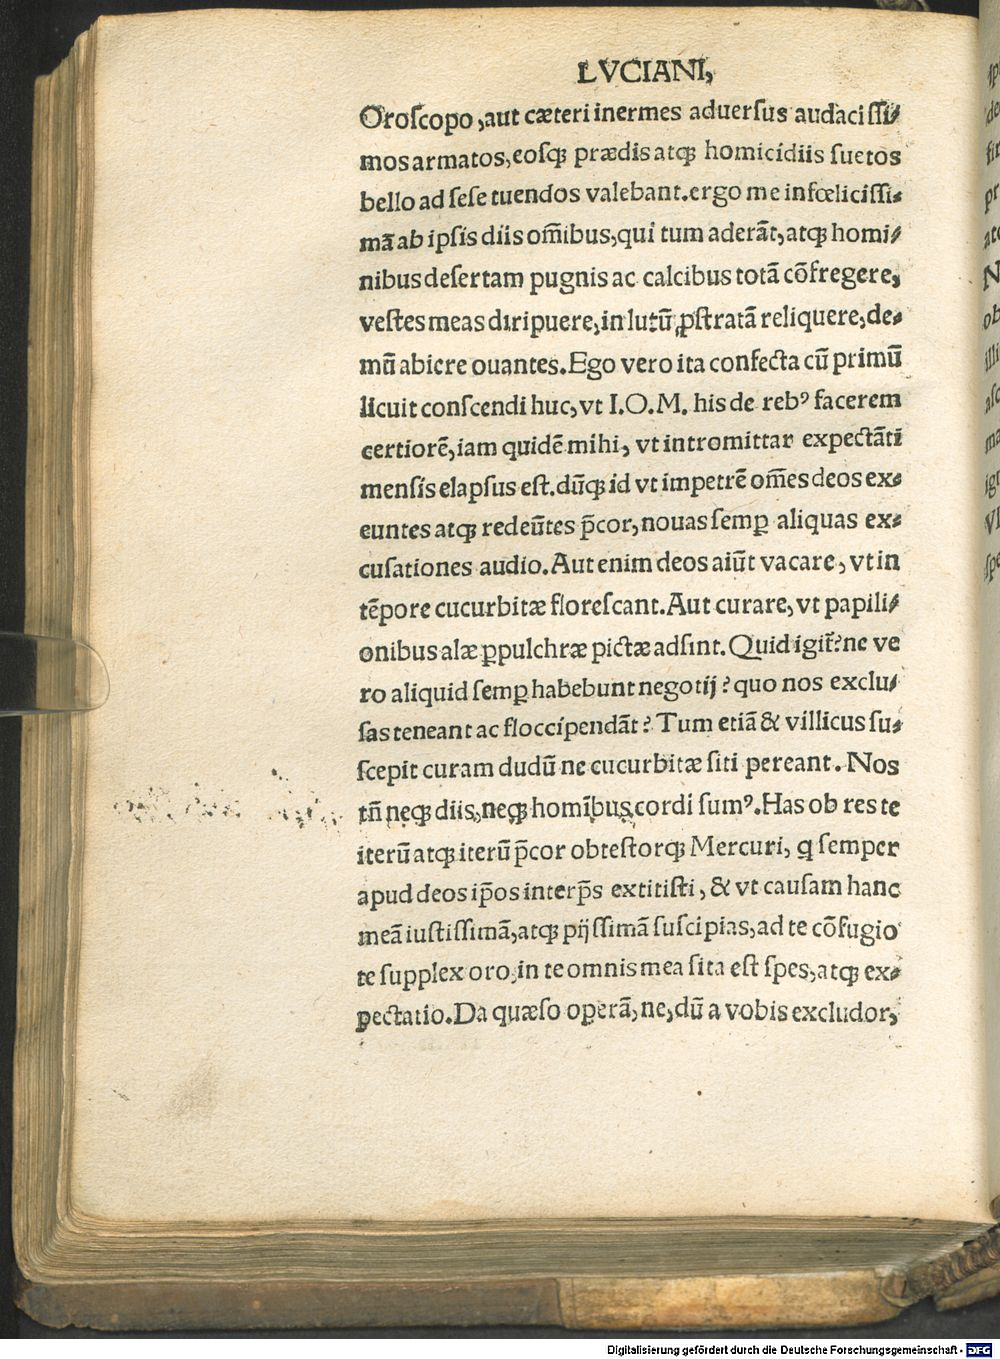 LVCIANI,
Oroſcopo, aut cæteri inermes aduerſus audaciſſi⸗
mos armatos, eoſqꝫ prædis atqꝫ homicidiis ſuetos
bello ad ſeſe tuendos valebant. ergo me infœliciſſi⸗
mā ab ipſis diis om̄ibus, qui tum aderāt, atqꝫ homi⸗
nibus deſertam pugnis ac calcibus totā cōfregere,
veſtes meas diripuere, in lutū ꝓſtratā reliquere, de⸗
mū abiere ouantes. Ego vero ita confecta cū primū
licuit conſcendi huc, vt I.O.M. his de rebꝰ facerem
certiorē, iam quidē mihi, vt intromittar expectāti
menſis elapſus eſt. dūqꝫ id vt impetrē om̄es deos ex⸗
euntes atqꝫ redeūtes p̄cor, nouas ſemꝑ aliquas ex⸗
cuſationes audio. Aut enim deos aiūt vacare, vt in
tēpore cucurbitæ floreſcant. Aut curare, vt papili⸗
onibus alæ ꝑpulchræ pictæ adſint. Quid igit̄? ne ve
ro aliquid ſemꝑ habebunt negotij? quo nos exclu⸗
ſas teneant ac floccipendāt? Tum etiā & villicus ſu⸗
ſcepit curam dudū ne cucurbitæ ſiti pereant. Nos
tn̄ neqꝫ diis, neqꝫ homībus cordi ſumꝰ. Has ob res te
iterū atqꝫ iterū p̄cor obteſtorqꝫ Mercuri, q ſemper
apud deos ip̄os interp̄s extitiſti, & vt cauſam hanc
meā iuſtiſſimā, atqꝫ pijſſimā ſuſcipias, ad te cōfugio
te ſupplex oro, in te omnis mea ſita eſt ſpes, atqꝫ ex⸗
pectatio. Da quæſo operā, ne, dū a vobis excludor,
Digitalisierung gefördert durch die Deutsche Forschungsgemeinschaft - DFG